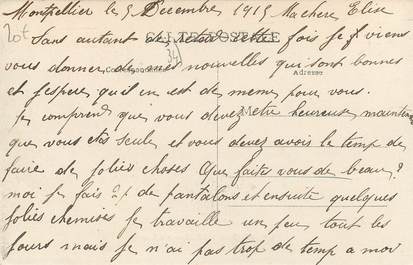 Montpellier le 5 Décembre 1915 Ma chere Elise
20f
Sans autant de retard cette fois je viens
CARTE POSTALE
vous donner de mes nouvelles qui sont bonnes
Correspondance
Adresse
et j'espere qu'il en est de meme pour vous.
Je comprend que vous devez etre heureuse maintenant
que vous etes seule et vous devez avoir le temp de
faire de jolies choses Que faites vous de beau?
moi je fais de pantalons et ensuite quelques
jolies chemises je travaille un peu tout les
jours mais je n'ai pas trop de temp a moi